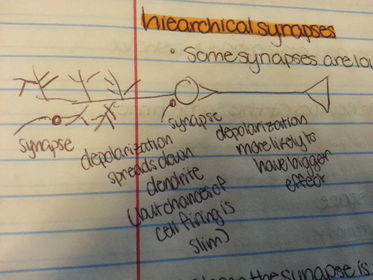 hiearchical synapses
• Some synapses are lo
synapse
depolarization
spreads down
dendrite
(but chances of
cell firing is
slim)
synapse
depolarization
more likely to
have bigger
effect
the synapse is